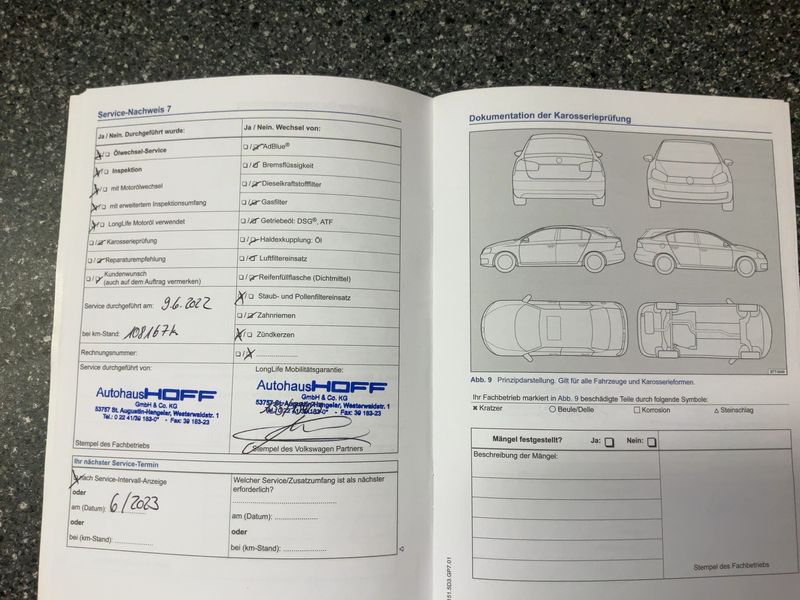 Service-Nachweis 7
Ja / Nein. Durchgeführt wurde:
Ölwechsel-Service
Inspektion
mit Motorölwechsel
mit erweitertem Inspektionsumfang
LongLife Motoröl verwendet
Karosserieprüfung
Reparaturempfehlung
Kundenwunsch
(auch auf dem Auftrag vermerken)
Service durchgeführt am: 9.6.2022
bei km-Stand: 108167k
Rechnungsnummer:
Service durchgeführt von:
Autohaus HOFF
GmbH & Co. KG
53757 St. Augustin-Hangelar, Westerwaldstr. 1
Tel.: 0 22 41/39 183-0* - Fax: 39 183-23
Stempel des Fachbetriebs
Ja / Nein. Wechsel von:
AdBlue®
Bremsflüssigkeit
Dieselkraftstofffilter
Gasfilter
Getriebeöl: DSG®, ATF
Haldexkupplung: Öl
Luftfiltereinsatz
Reifenfüllflasche (Dichtmittel)
Staub- und Pollenfiltereinsatz
Zahnriemen
Zündkerzen
LongLife Mobilitätsgarantie:
Autohaus HOFF
GmbH & Co. KG
53757 St. Augustin-Hangelar, Westerwaldstr. 1
Tel.: 0 22 41/39 183-0* - Fax: 39 183-23
Stempel des Volkswagen Partners
Ihr nächster Service-Termin
nach Service-Intervall-Anzeige
oder
am (Datum): 6/2023
oder
bei (km-Stand):
Welcher Service/Zusatzumfang ist als nächster
erforderlich?
am (Datum):
oder
bei (km-Stand):
Dokumentation der Karosserieprüfung
Abb. 9 Prinzipdarstellung. Gilt für alle Fahrzeuge und Karosserieformen.
Ihr Fachbetrieb markiert in Abb. 9 beschädigte Teile durch folgende Symbole:
Kratzer Beule/Delle Korrosion Steinschlag
Mängel festgestellt? Ja: Nein:
Beschreibung der Mängel:
Stempel des Fachbetriebs
151.5D3.GP7.01